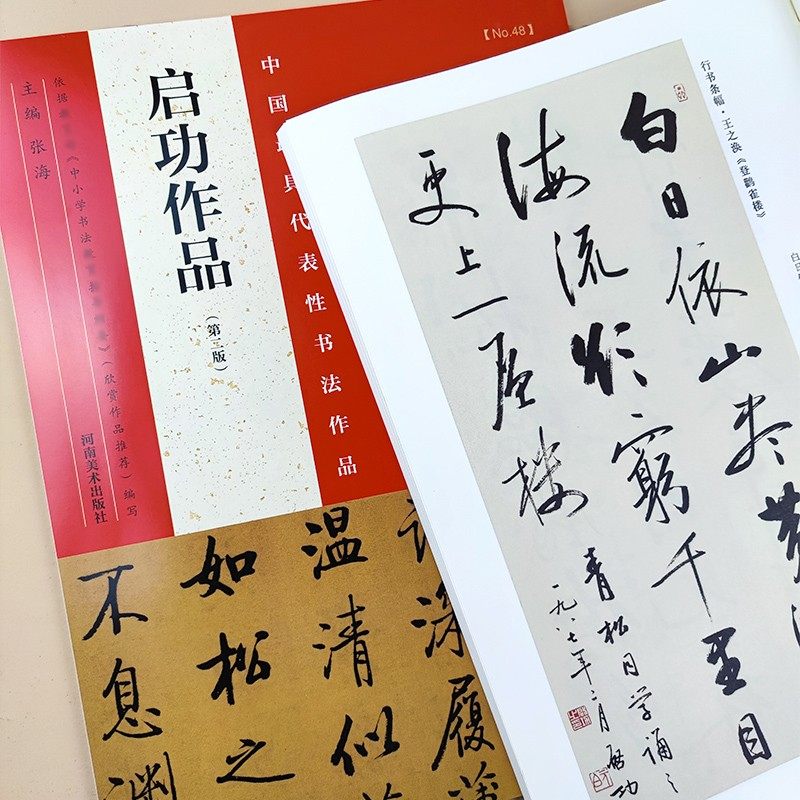 【No.48】
中国最具代表性书法作品
启功作品
(第二版)
主编 张海
依据《中小学书法》(欣赏作品推荐)编写
河南美术出版社
深履薄
温清似
如松之
不息渊
行书条幅·王之涣《登鹳雀楼》
白日依山尽黄
海流欲窮千里目
更上一层楼
青松同学诵之
一九八七年二月 启功